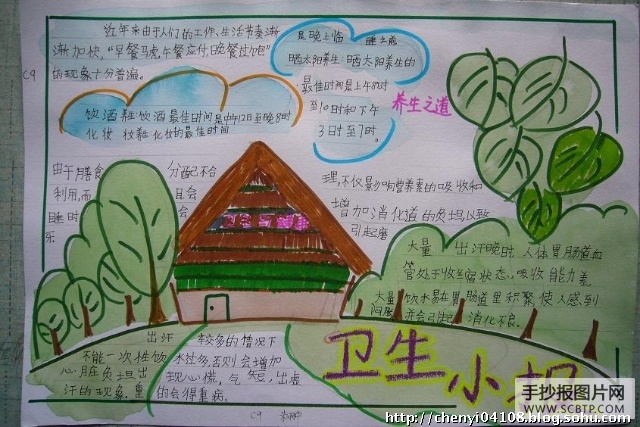 近年来由于人们的工作、生活节奏渐
渐加快,"早餐马虎,午餐应付,晚餐过饱"
的现象十分普遍。
C9
晒太阳养生:晒太阳养生的
最佳时间是上午8时
到10时和下午
3时至7时。
养生之道
饮酒 饮酒最佳时间是中午12至晚8时
化妆 化妆的最佳时间
由于膳食 分配不合
理,不仅影响营养素的吸收和
利用,而且会
增加消化道的负担以致
引起
大量出汗晚时,人体胃肠道血
管处于收缩状态,吸收能力差,
大量饮水易在胃肠道里积聚,使人感到
并会引起消化不良。
出汗较多的情况下
不能一次性饮水过多,否则会增加
心脏负担出现心慌,气短,出虚
汗的现象,重的会得重病。
卫生小报
C9
手抄报图片网
WWW.SCBTP.COM
http://chenyi04108.blog.sohu.com